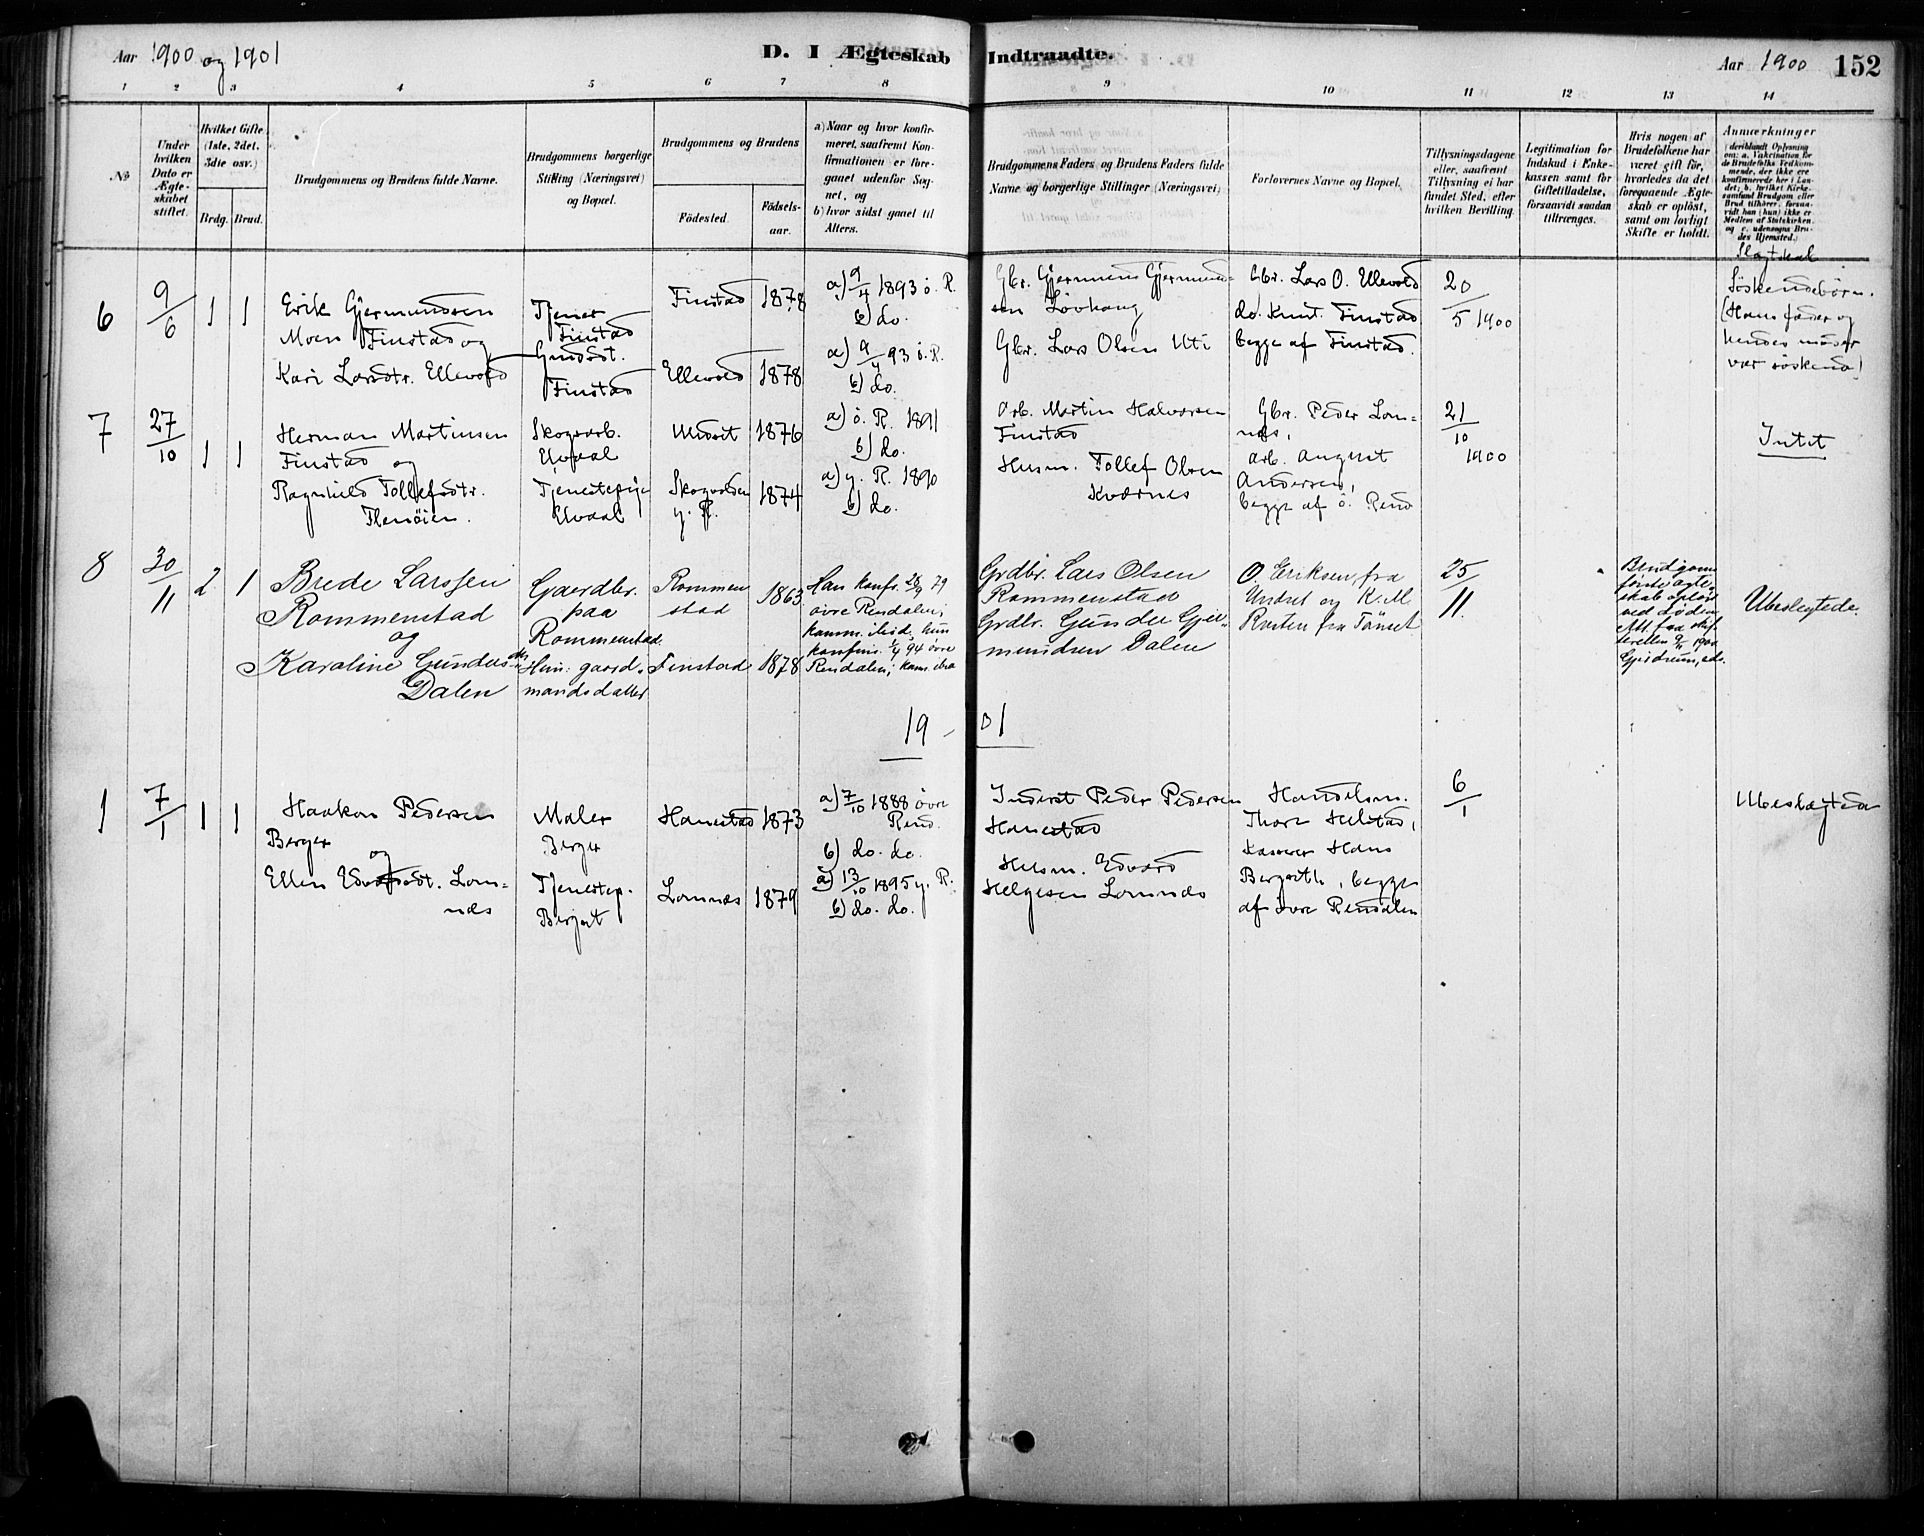 Aar 1900 og 1901
D. I Ægteskab Indtraadte.
Aar 1900 152
1 2 3 4 5 6 7 8 9 10 11 12 13 14
No
Under
hvilken
Dato er
Ægte-
skabet
stiftet.
Hvilket Gifte
(1ste, 2det,
3die osv.)
Brdg. Brud.
Brudgommens og Brudens fulde Navne.
Brudgommens borgerlige
Stilling (Næringsvei)
og Bopæl.
Brudgommens og Brudens
Födested.
Födsels-
aar.
a) Naar og hvor konfir-
meret, saafremt Kon-
firmationen er fore-
gaaet udenfor Sog-
net, og
b) hvor sidst gaaet til
Alters.
Brudgommens Faders og Brudens Faders fulde
Navne og borgerlige Stillinger (Næringsvei)
Forlovernes Navne og Bopæl.
Tillysningsdagene
eller, saafremt
Tillysning ei har
fundet Sted, efter
hvilken Bevilling.
Legitimation for
Indskud i Enke-
kassen samt for
Giftetilladelse,
forsaavidt saadan
tiltrænges.
Hvis nogen af
Brudefolkene har
været gift för,
hvorledes da det
foregaaende Ægte-
skab er oplöst,
samt om lovligt
Skifte er holdt.
Anmærkninger
(deriblandt Oplysning
om: a. Vakcination for
de Brudefolks Vedkom-
mende, der ikke ere
konfirmerede her i Lan-
det; b. hvilket Kirke-
samfund Brudgom eller
Brud tilhører, forsaa-
vidt han (hun) ikke er
Medlem af Statskirken,
og c. udensogns Bru-
des Hjemsted.)
6 9/6 1 1
Erik Gjermundsen
Moen Finstad og
Kari Larsdtr. Ellevold
Tjener
Finstad
Finstad
Finstad 1878
Ellevold 1878
a) 9/4 1893 ö. R.
b) do.
a) 9/4 93 ö. R.
b) do.
Gbr. Gjermund Gjermund-
sen Lövhaug
Gbr. Lars Olsen Uti
Gbr. Lars O. Ellevold
do. Knut Finstad
begge af Finstad.
20/5 1900
Slægtskab
Söskendebörn.
(Hans fader og
hendes moder
var söskend)
7 27/10 1 1
Herman Martinsen
Finstad og
Ragnhild Tollefsdtr.
Skogsarb.
Elvaal
Tjenestepige
Elvaal
Undset 1876
Skogvolden
y. R. 1874
a) ö. R. 1891
b) do.
a) y. R. 1890
b) do.
Arb. Martin Halvorsen
Finstad
Husm. Tollef Olsen
Kværnes
Gbr. Peder Lom-
næs,
arb. August
Andersen,
begge af ö. Rend
21/10 1900
Intet
8 30/11 2 1
Brede Larssen
Rommenstad
og
Karoline Gundersdtr
Dalen
Gaardbr.
paa
Rommenstad
Hun: gaard-
mandsdatter
Rommen
stad 1863
Finstad 1878
Han konf. 28/9 79
övre Rendalen;
komm. ibid; hun
konfirm. 1/4 94 övre
Rendalen; kom. ibid
Grdbr. Lars Olsen
Rommenstad
Grdbr. Gunder Gjer-
mundsen Dalen
O. Eriksen fra
Undset og K. M.
Rosten fra Tönset
25/11.
Brudgom
förste ægte
skab oplöst
ved döden
Att. fra skif
teretten 9/11 1900
Ubeslegtede.
19 - 01
1 7/1 1 1
Haakon Pedersen
Berger
og
Ellen Edvardsdt. Lom-
næs
Maler
Berger
Tjenestep.
Berget
Hanestad 1873
Lomnæs 1879
a) 7/10 1888 övre
Rend.
b) do. do.
a) 13/10 1895 y. R.
b) do. do.
Inderst Peder Pedersen
Hanestad
Husm. Edvard
Helgesen Lomnæs
Handelsm.
Thore Helstad,
Kasserer Hans
Bergseth, begge
af övre Rendalen
6/1
Ubeslægtede